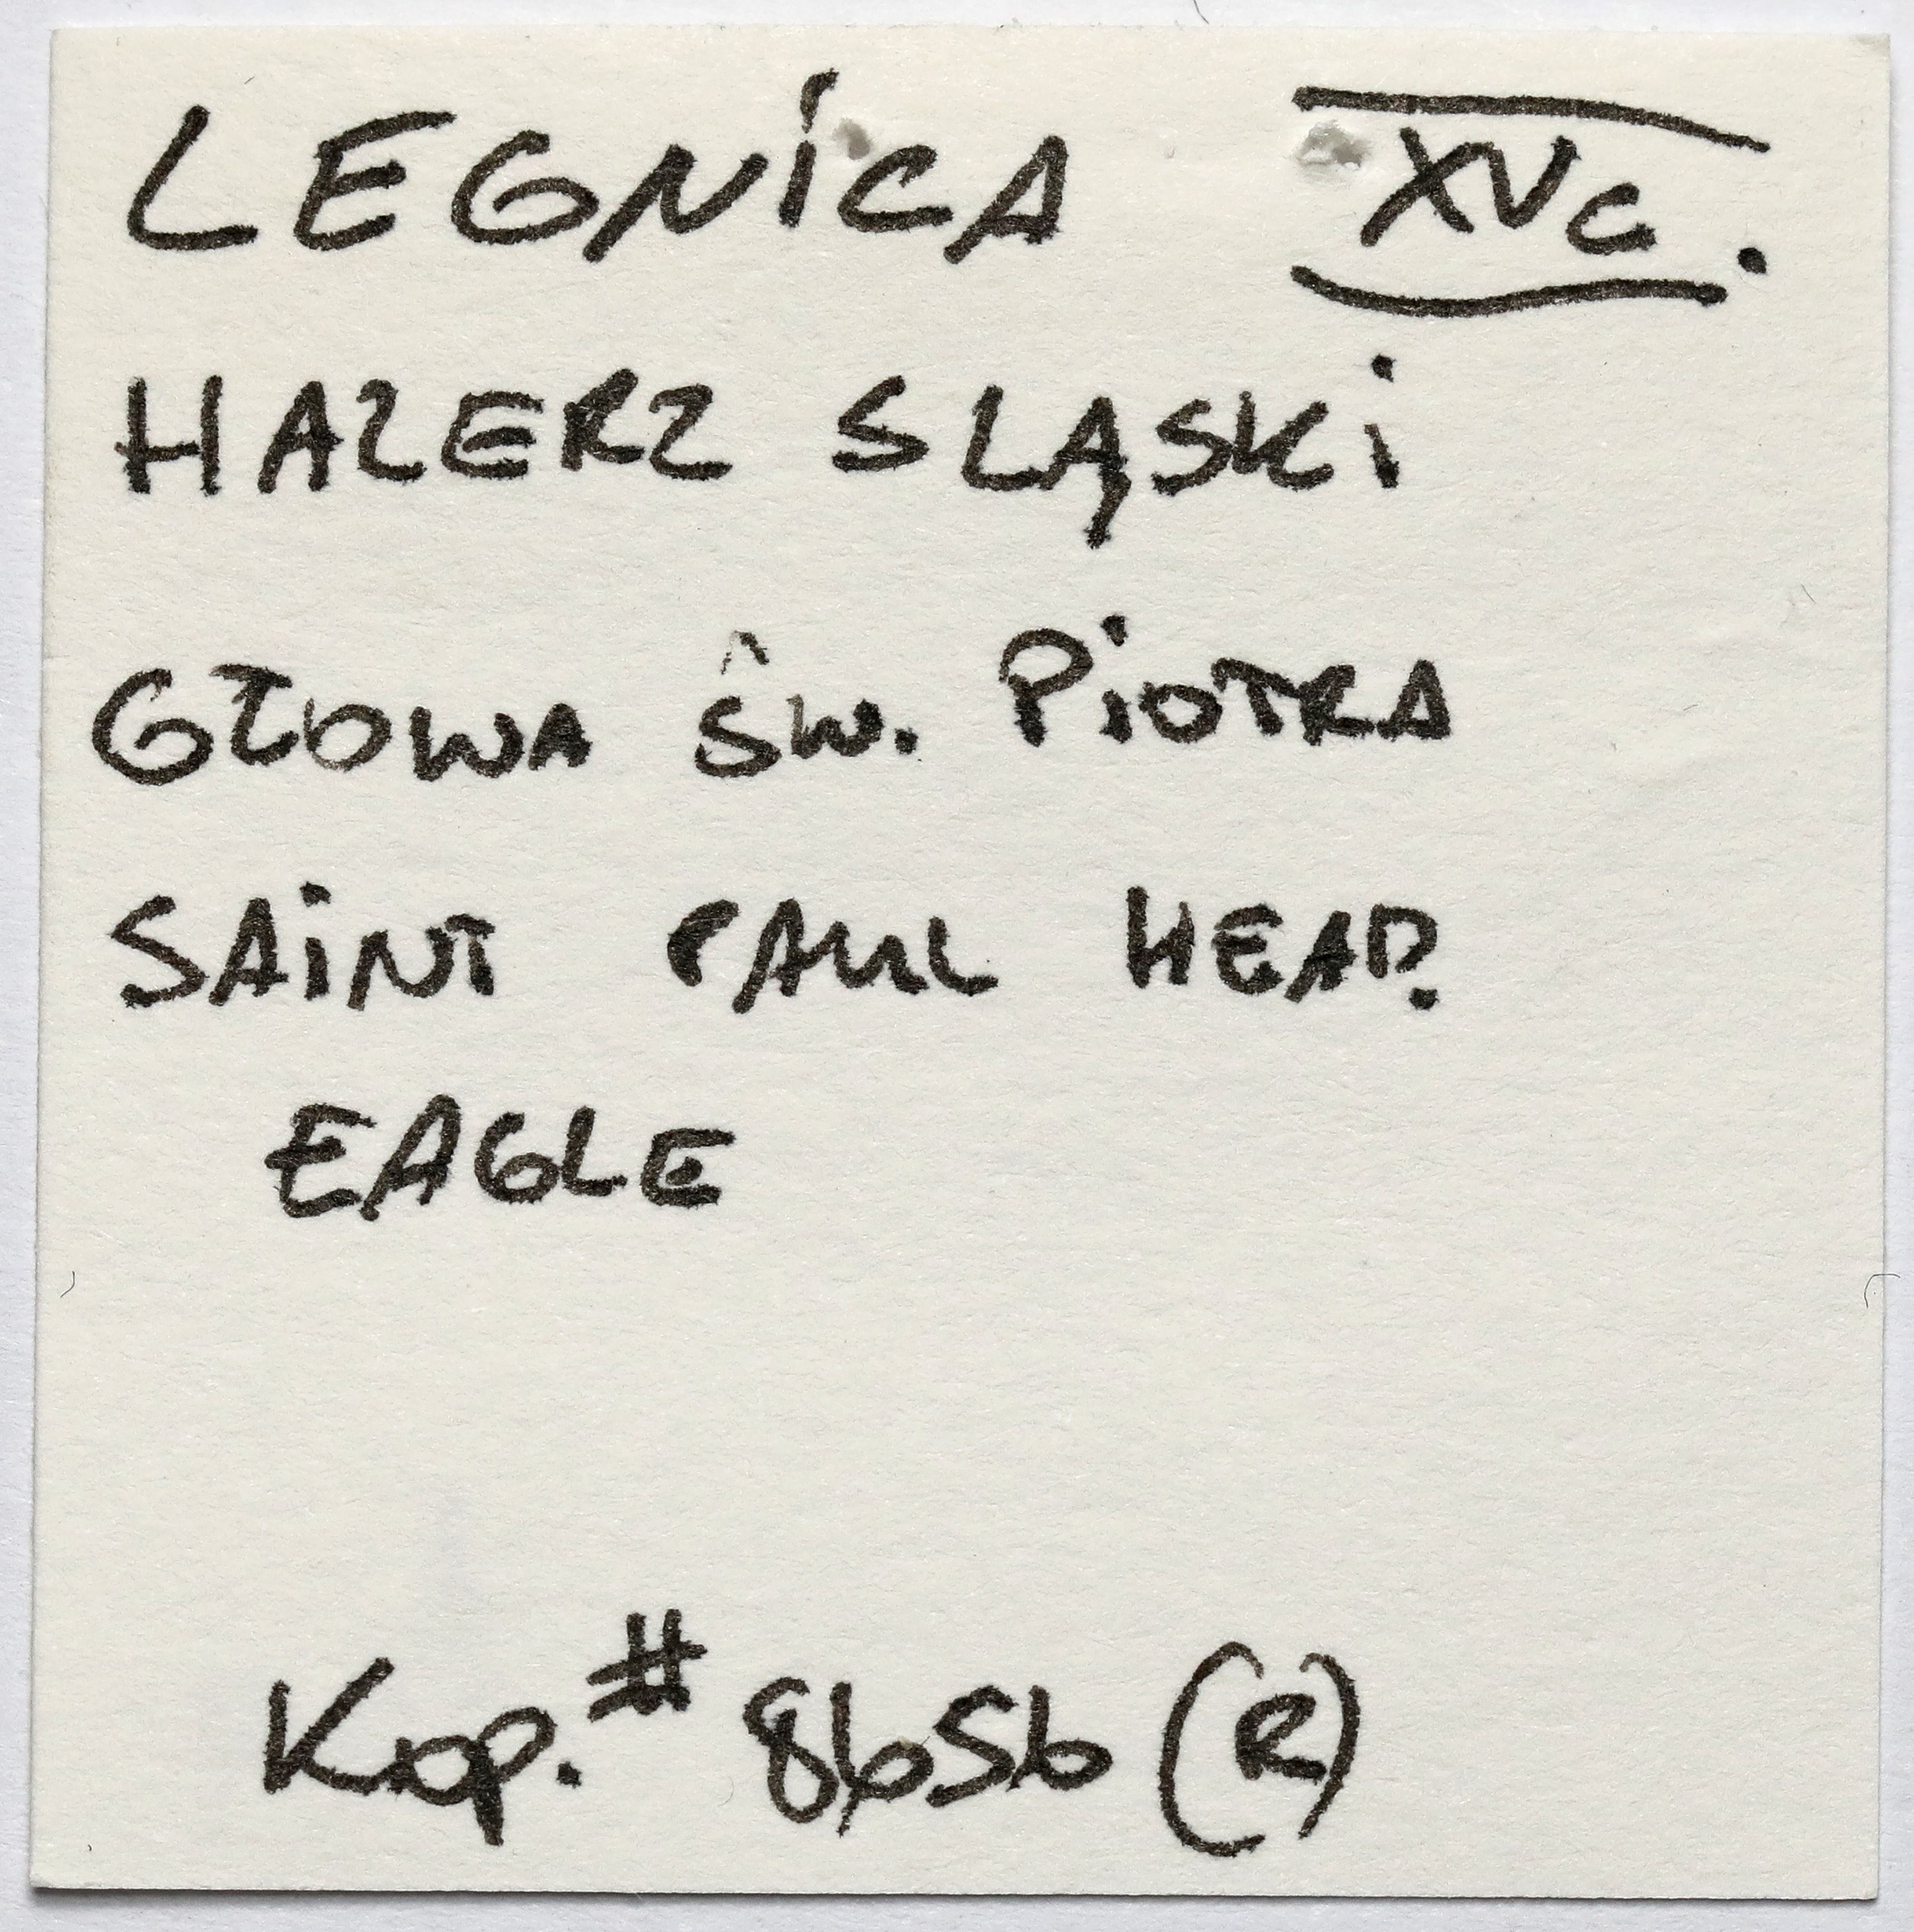 LEGNiCA XVc.
HALERZ SLĄSKi
GŁOWA ŚW. PiOTRA
SAiNT PAUL HEAD.
EAGLE
Kop. # 8656 (R)